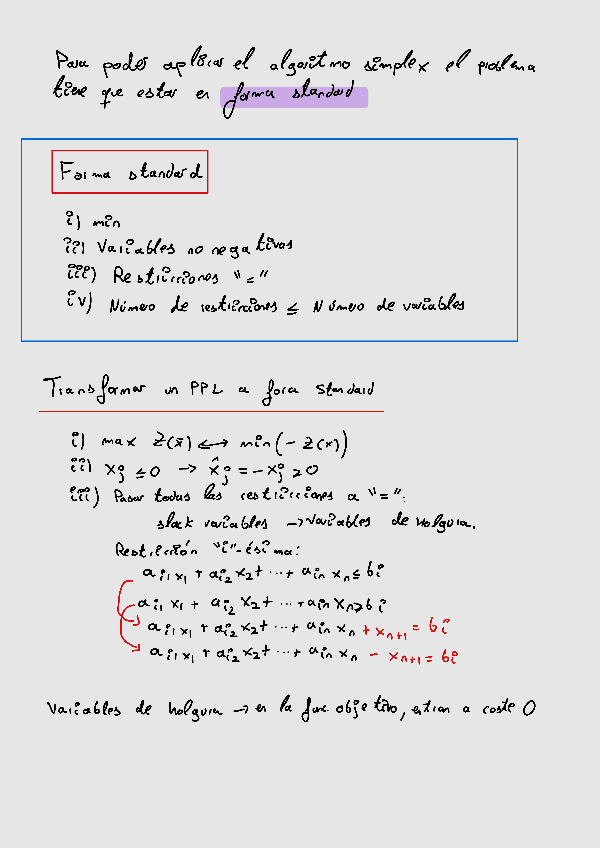 Para poder aplicar el algoritmo simplex el problema
tiene que estar en forma standard
Forma standard
i) min
ii) Variables no negativas
iii) Restricciones "="
iv) Número de restricciones ≤ Número de variables
Transformar un PPL a fora standard
i) max Z(x̄) ⟷ min(-Z(x))
ii) xj ≤ 0 → x̂j = -xj ≥ 0
iii) Pasar todas las restricciones a "=":
slack variables → variables de holgura.
Restricción "i"-ésima:
ai1x1 + ai2x2 + ... + ainxn ≤ bi
ai1x1 + ai2x2 + ... + ainxn ≥ bi
ai1x1 + ai2x2 + ... + ainxn + xn+1 = bi
ai1x1 + ai2x2 + ... + ainxn - xn+1 = bi
Variables de holgura → en la func objetivo, entran a coste 0